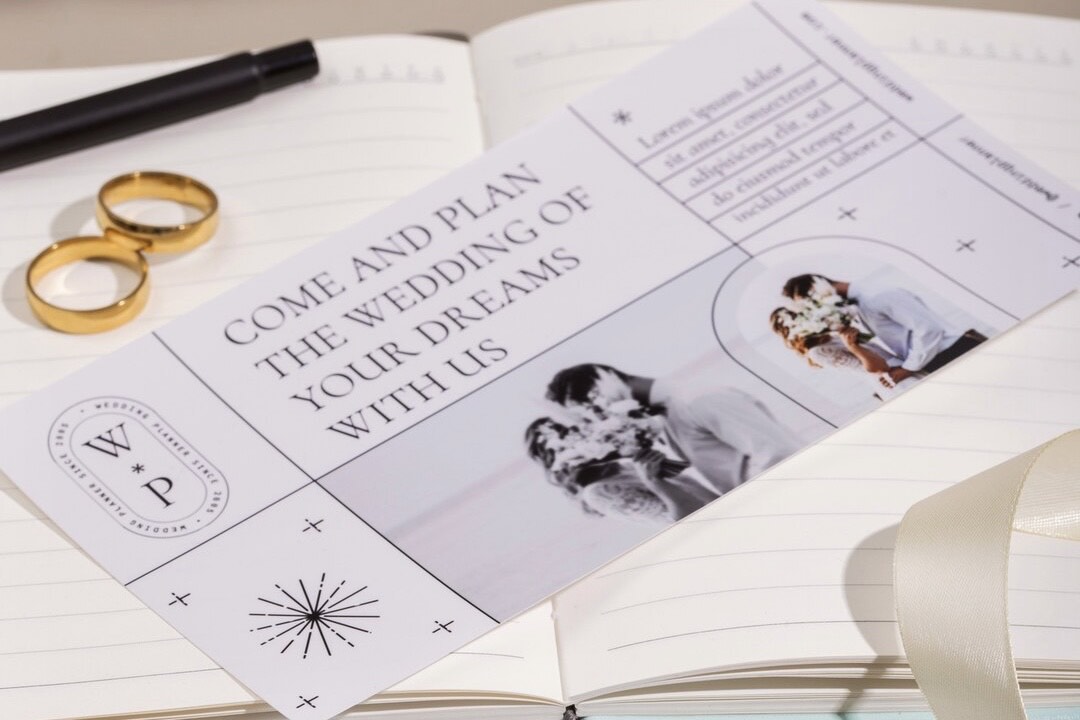 COME AND PLAN
THE WEDDING OF
YOUR DREAMS
WITH US
Lorem ipsum dolor
sit amet, consectetur
adipisicing elit, sed
do eiusmod tempor
incididunt ut labore et
W
*
P
WEDDING PLANNER SINCE 2005 • WEDDING PLANNER SINCE 2005 •